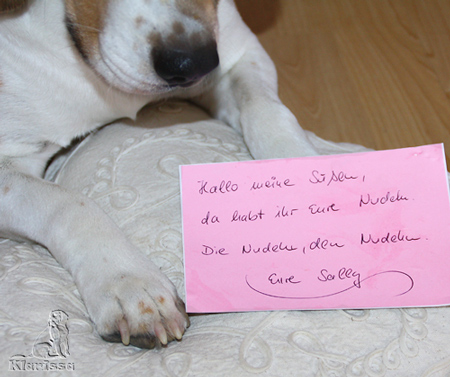 Hallo meine Süßen,
da habt ihr Eure Nudeln.
Die Nudeln, den Nudeln.
Eure Sally
Klarissa